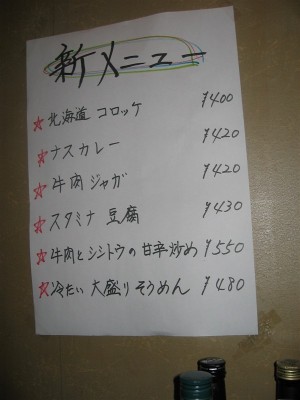 新メニュー
☆北海道 コロッケ ¥400
☆ナスカレー ¥420
☆牛肉 ジャガ ¥420
☆スタミナ 豆腐 ¥430
☆牛肉とシシトウの甘辛炒め ¥550
☆冷たい 大盛りそうめん ¥480